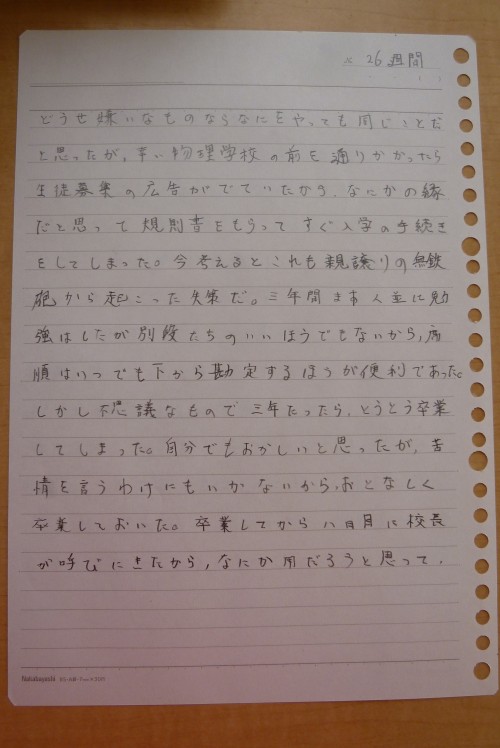 26週間
どうせ嫌いなものならなにをやっても同じことだ
と思ったが、幸い物理学校の前を通りかかったら
生徒募集の広告がでていたから、なにかの縁
だと思って規則書をもらってすぐ入学の手続き
をしてしまった。今考えるとこれも親譲りの無鉄
砲から起こった失策だ。三年間まあ人並に勉
強はしたが別段たちのいいほうでもないから、席
順はいつでも下から勘定するほうが便利であった。
しかし不思議なもので三年たったら、とうとう卒業
してしまった。自分でもおかしいと思ったが、苦
情を言うわけにもいかないから、おとなしく
卒業しておいた。卒業してから八日目に校長
が呼びにきたから、なにか用だろうと思って、
Nakabayashi